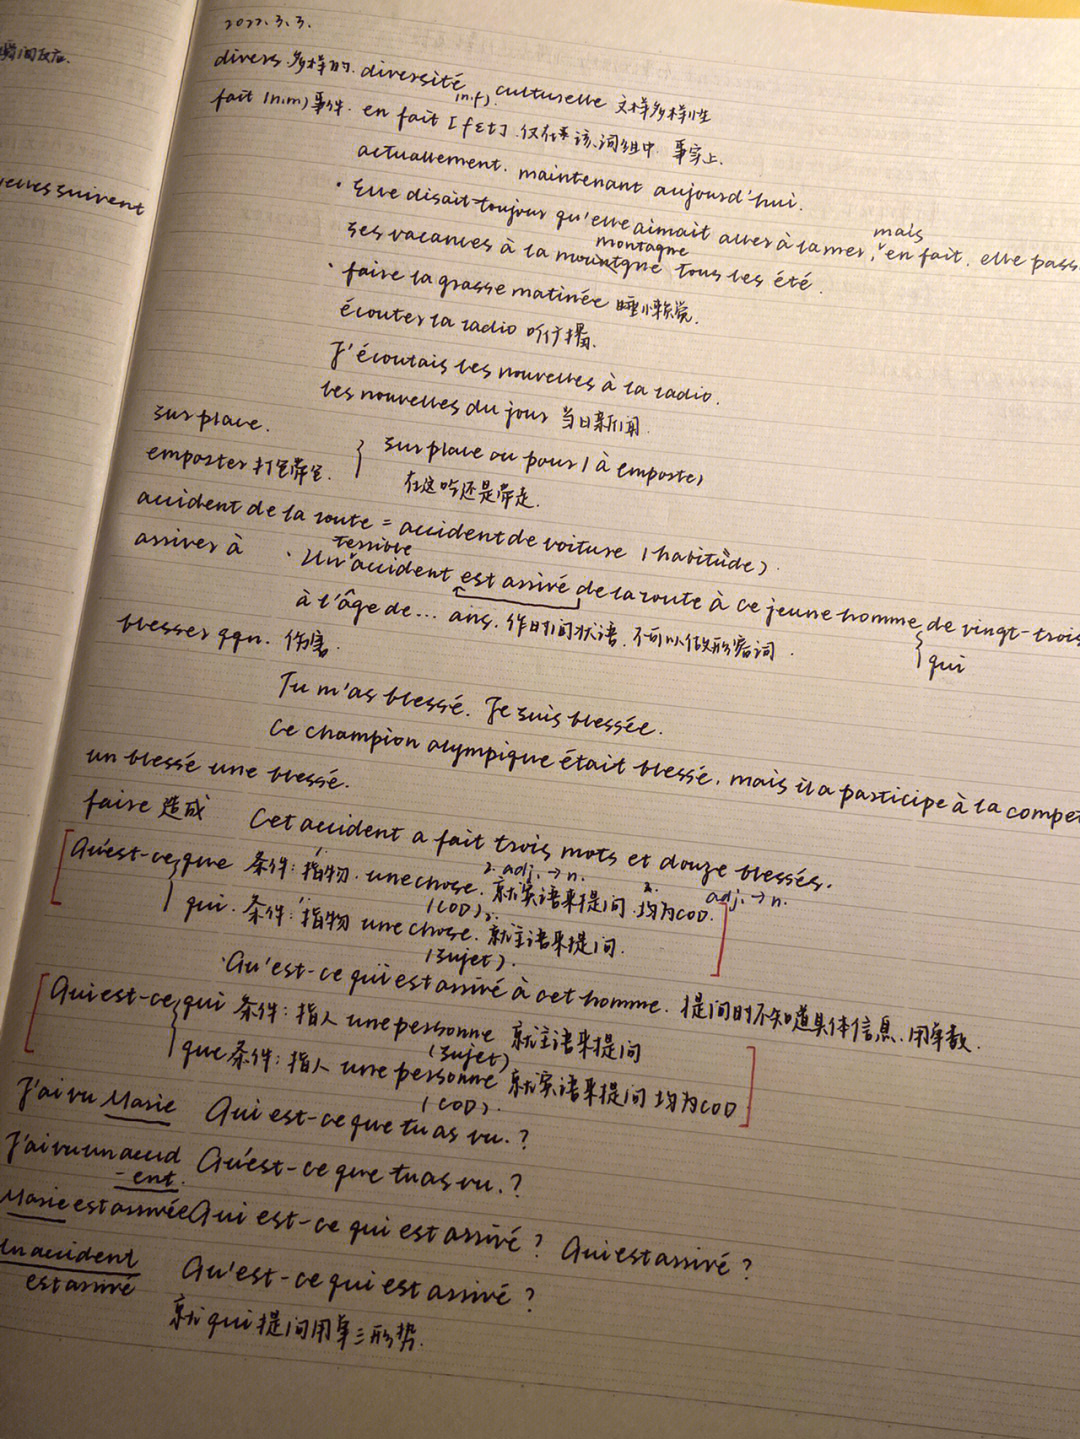 2022.3.3.
瞬间反应.
elles suivent
divers 多样的. diversité (n.f). culturelle 文样多样性
fait (n.m) 事件. en fait [fɛt]. 仅在该词组中. 事实上.
actuallement. maintenant aujourd'hui.
· Elle disait toujour qu'elle aimait aller à la mer, mais en fait. elle pass
ses vacances à la montagne tous les été.
· faire la grasse matinée 睡懒觉.
écouter la radio 听广播.
J'écoutais les nouvelles à la radio.
les nouvelles du jour 当日新闻.
sur place.
emporter 打包带走. sur place ou pour / à emporter
在这吃还是带走.
accident de la route = accident de voiture (habitude).
arriver à · Un terrible accident est arrivé de la route à ce jeune homme de vingt-trois
qui
à l'âge de... ans. 作时间状语. 不可以做形容词.
blesser qqn. 伤害.
Tu m'as blessé. Je suis blessée.
Ce champion olympique était blessé, mais il a participe à la compet
un blessé une blessé.
faire 造成 Cet accident a fait trois mots et douze blessés.
2. adj. → n. adj. → n.
Qu'est-ce que 条件: 指物. une chose. 就宾语来提问. 均为COD.
(COD).
qui. 条件: 指物 une chose. 就主语来提问.
(sujet).
· Qu'est-ce qui est arrivé à cet homme. 提问时不知道具体信息, 用单数.
Qui est-ce qui 条件: 指人 une personne 就主语来提问
(sujet)
que 条件: 指人 une personne 就宾语来提问 均为COD
(COD).
J'ai vu Marie Qui est-ce que tu as vu.?
J'ai vu un accid-ent. Qu'est-ce que tu as vu.?
Marie est arrivée Qui est-ce qui est arrivé? Qui est arrivé?
Un accident est arrivé Qu'est-ce qui est arrivé?
就qui提问用单三形势.